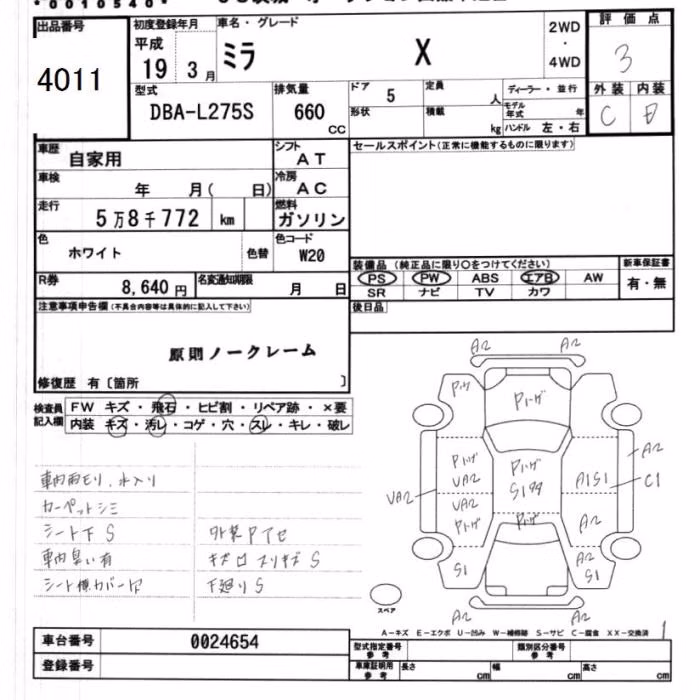 *0010540*
出品番号 初度登録年月 車名・グレード 2WD 評価点
4011 平成 ミラ X ・ 3
19 3月 4WD
型式 排気量 ドア 5 定員 人 ディーラー・並行 外装 内装
DBA-L275S 660 CC 形状 積載 kg モデル年式 年 C
ハンドル 左・右
車歴 自家用 シフト AT セールスポイント(正常に機能するものに限ります)
車検 年 月( 日) 冷房 AC
走行 5万8千772 km 燃料 ガソリン
色 ホワイト 色替 色コード W20
装備品 (純正品に限り○をつけてください) 新車保証書
R券 8,640円 名変通知期限 月 日 PS PW ABS エアB AW 有・無
SR ナビ TV カワ
注意事項申告欄(不具合内容等は具体的に記入して下さい) 後日品
原則ノークレーム
修復歴 有〔箇所 〕
検査員 FW キズ・飛石・ヒビ割・リペア跡・×要
記入欄 内装 キズ・汚レ・コゲ・穴・スレ・キレ・破レ
車内雨モリ、水入り
カーペットシミ
シート下 S 外装Pアセ
車内臭い有 キズ ロ スリキズ S
下廻り S
A2 A2
Pトゲ
Pトゲ Pトゲ A2
VA2 VA2 S199 A1S1 C1
VA2
Pトゲ Pトゲ A2
S1 A2
S1
A2 A2
スペア
A-キズ E-エクボ U-凹み W-補修跡 S-サビ C-腐食 XX-交換済
車台番号 0024654 型式指定番号 参考 類別区分番号 参考
登録番号 車庫証明用 参考 長さ cm 幅 cm 高さ cm